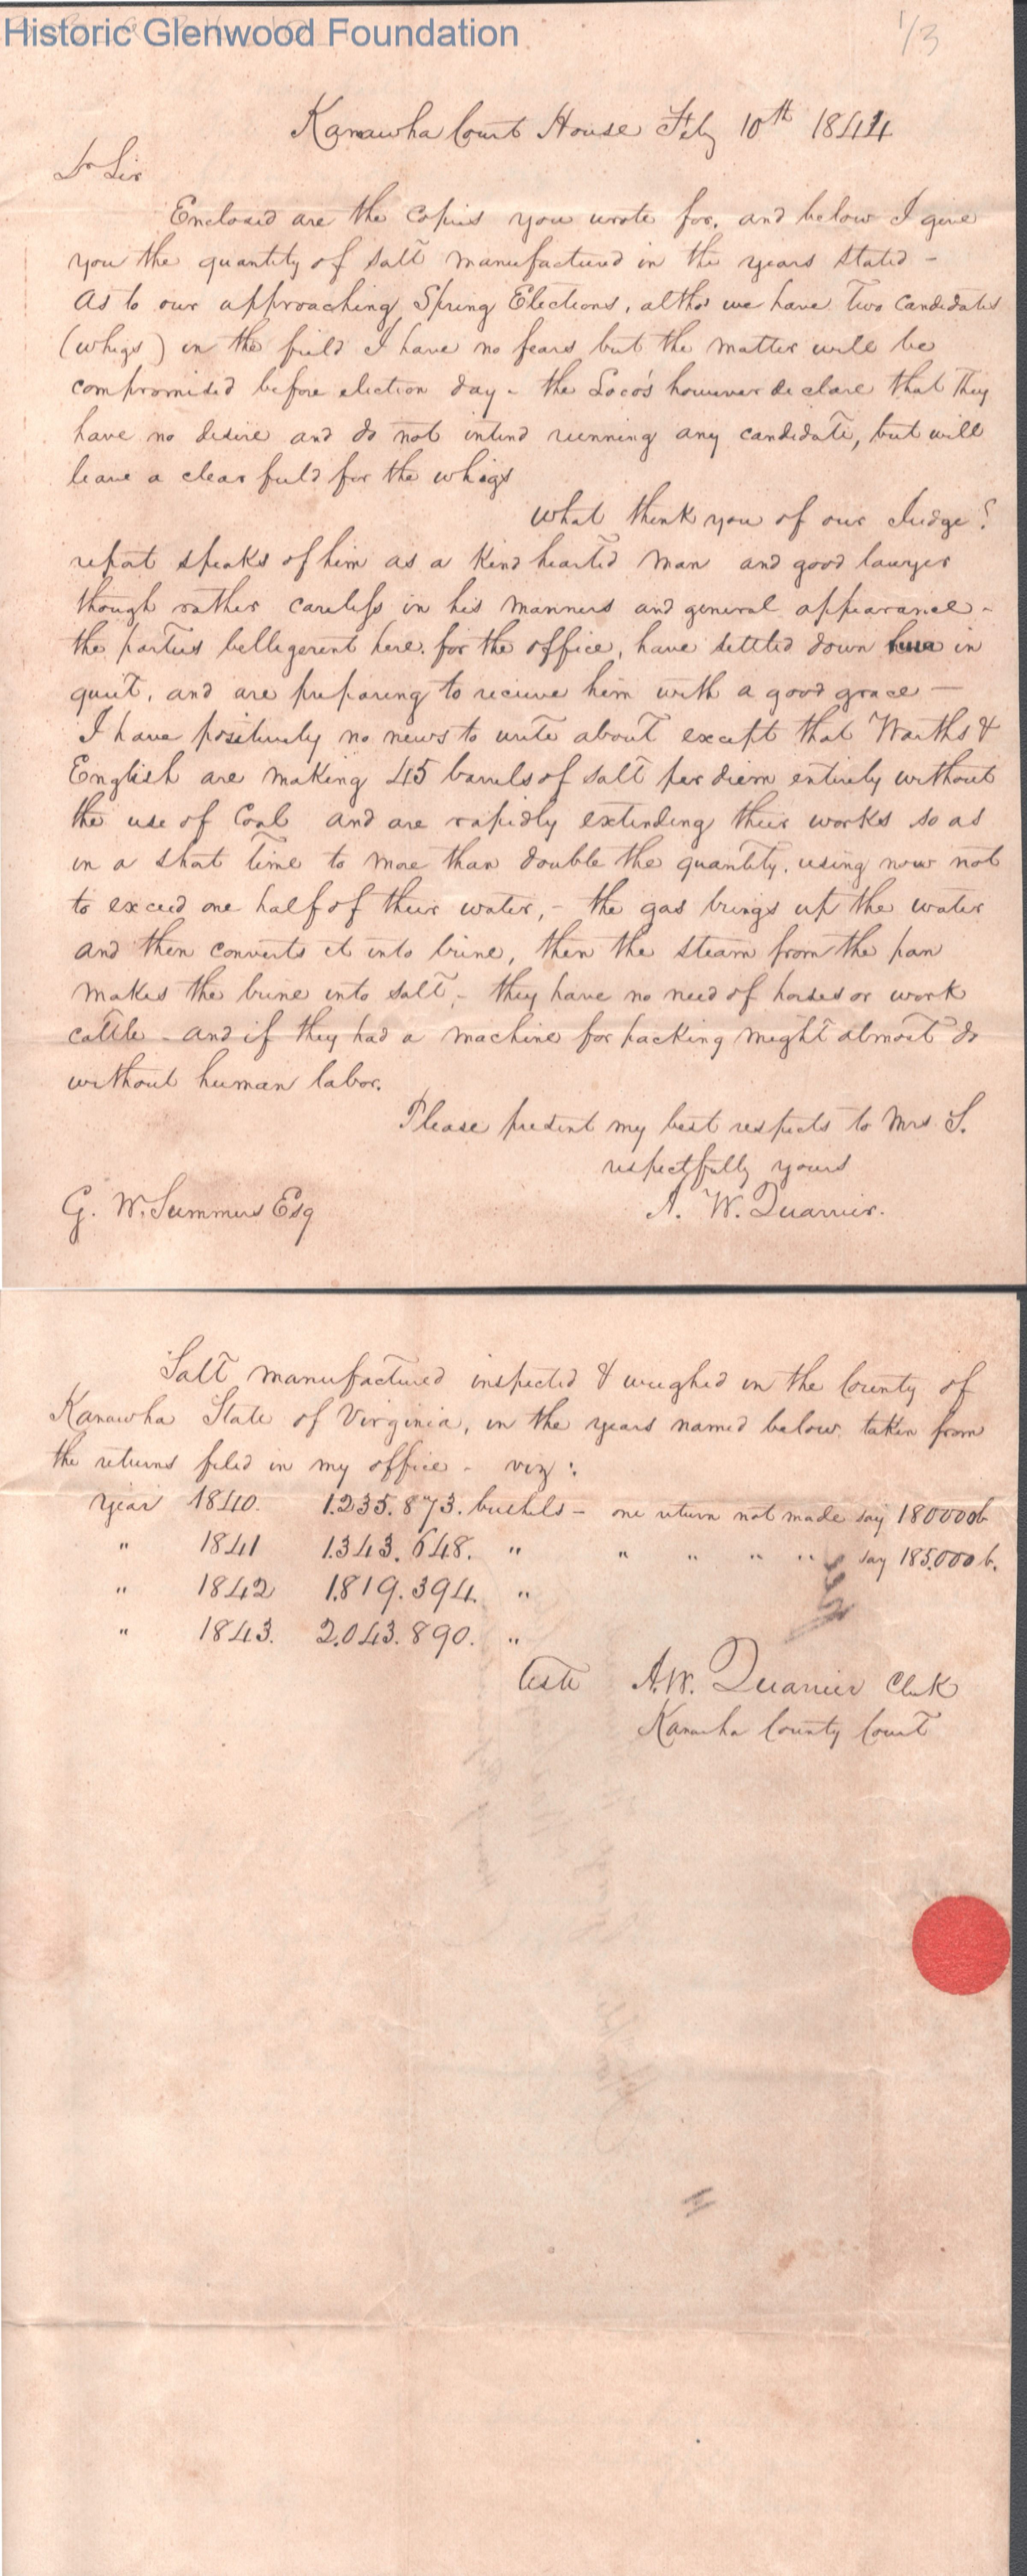 Historic Glenwood Foundation
1/3
Kanawha Court House Feby 10th 1844
Dr Sir
Enclosed are the copies you wrote for, and below I give
you the quantity of salt manufactured in the years stated -
As to our approaching Spring Elections, altho' we have two candidates
(whigs) in the field I have no fears but the matter will be
compromised before election day - the Loco's however declare that they
have no desire and do not intend running any candidate, but will
leave a clear field for the whigs
What think you of our Judge?
report speaks of him as a kind hearted man and good lawyer
though rather careless in his manners and general appearance -
the parties belligerent here for the office, have settled down in
quiet, and are preparing to receive him with a good grace —
I have positively no news to write about except that Warths &
English are making 45 barrels of salt per diem entirely without
the use of Coal and are rapidly extending their works so as
in a short time to more than double the quantity, using now not
to exceed one half of their water, - the gas brings up the water
and then converts it into brine, then the steam from the pan
makes the brine into salt, - they have no need of horses or work
cattle - and if they had a machine for packing might almost do
without human labor.
Please present my best respects to Mrs S.
respectfully yours
G. W. Summers Esq
A. W. Quarrier.
Salt manufactured inspected & weighed in the County of
Kanawha State of Virginia, in the years named below taken from
the returns filed in my office - viz:
year 1840. 1.235.873. bushels - one return not made say 180000b
" 1841 1.343.648. " " " " " say 185.000 b.
" 1842 1.819.394. "
" 1843. 2.043.890. "
Teste A.W. Quarrier Clk
Kanawha County Court